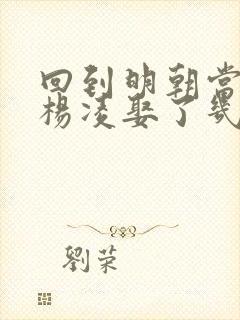 回到明朝当
杨凌娶了几
劉荣